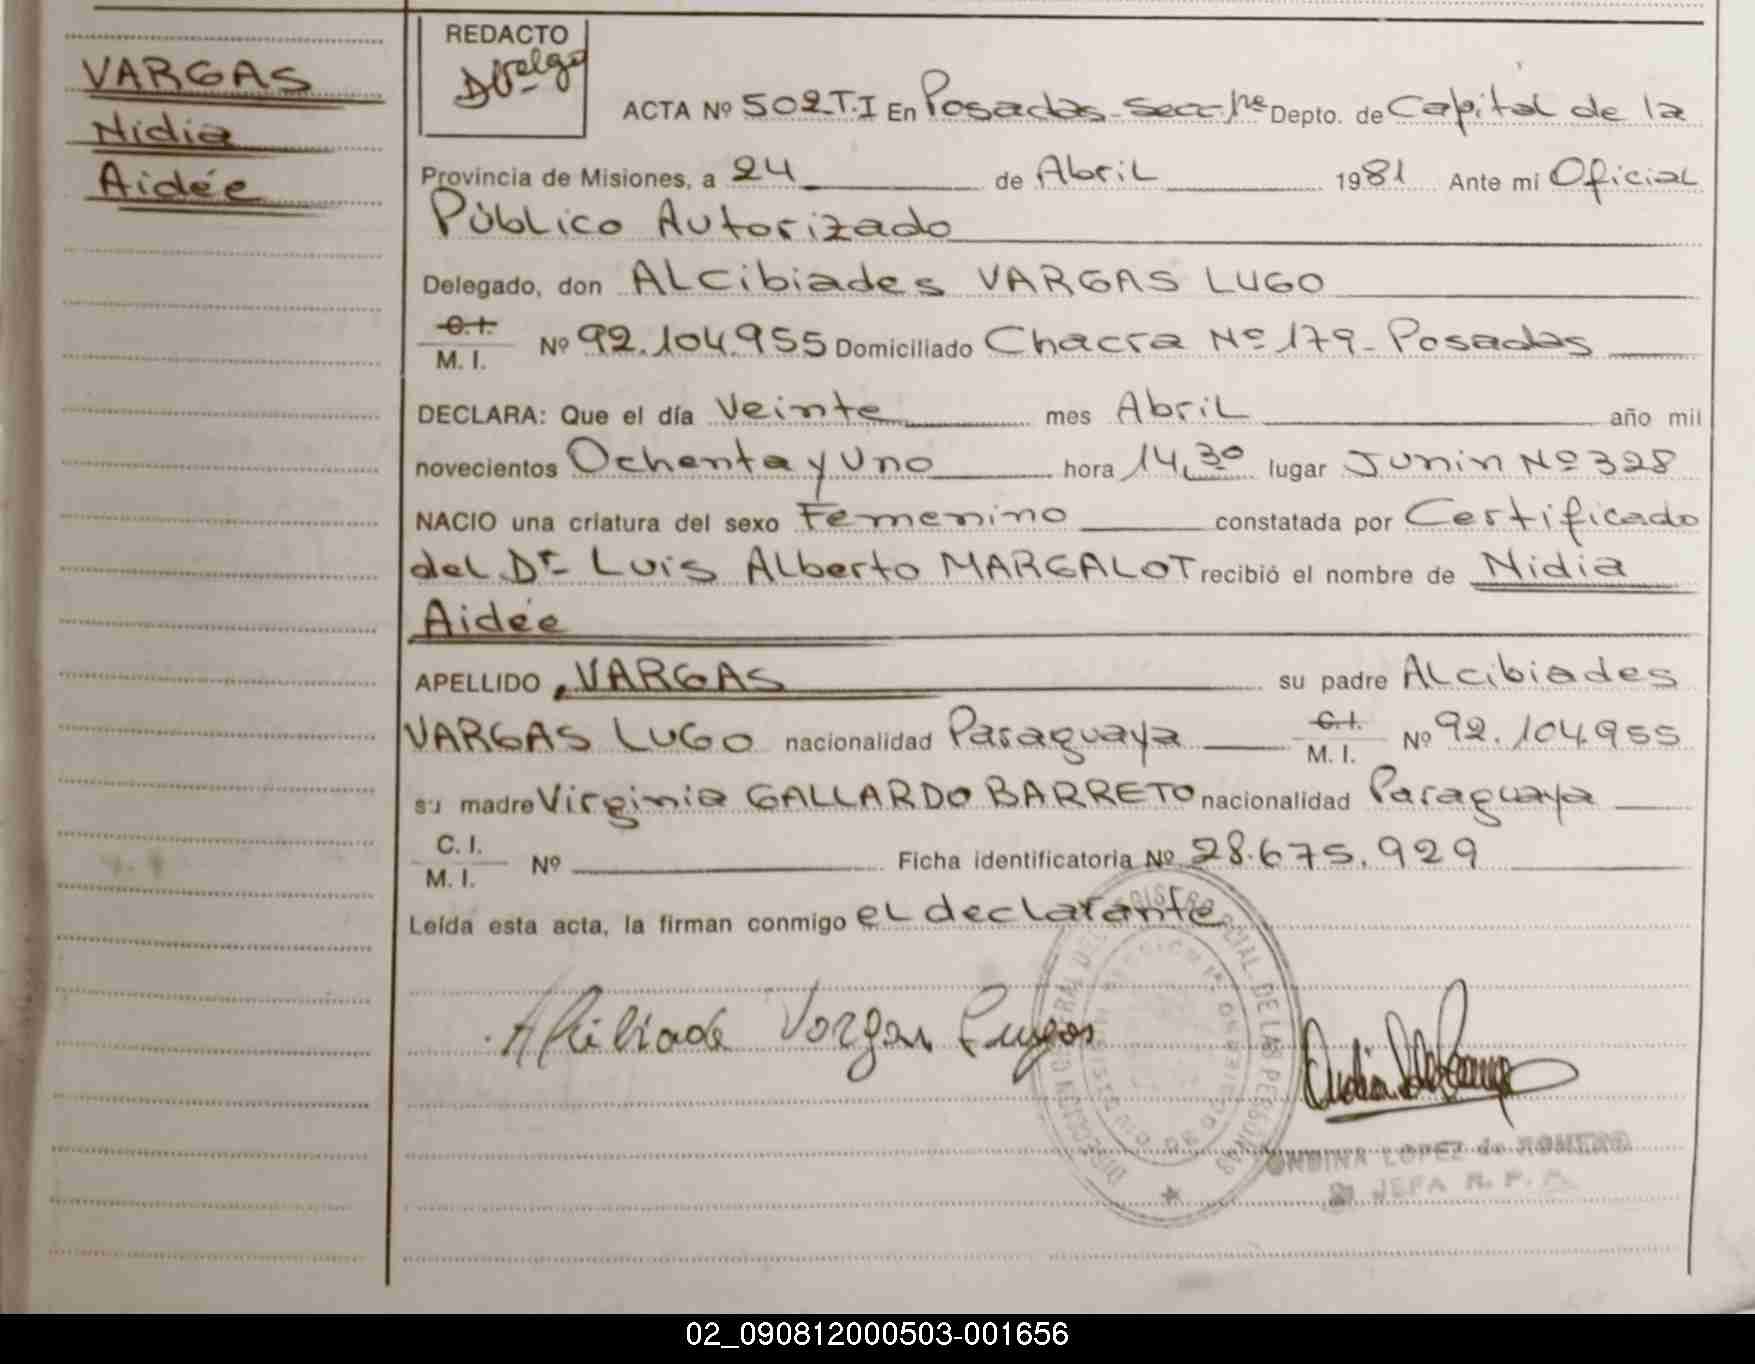 VARGAS
Nidia
Aidée
REDACTO
ACTA Nº 502 T.I En Posadas Secc. 1ra Depto. de Capital de la
Provincia de Misiones, a 24 de Abril 1981 Ante mi Oficial
Público Autorizado
Delegado, don ALcibiades VARGAS LUGO
C.I.
M. I. Nº 92.104.955 Domiciliado Chacra Nº 179- Posadas
DECLARA: Que el día Veinte mes Abril año mil
novecientos Ochenta y Uno hora 14,30 lugar Junin Nº 328
NACIO una criatura del sexo Femenino constatada por Certificado
del Dr. Luis Alberto MARGALOT recibió el nombre de Nidia
Aidée
APELLIDO VARGAS su padre Alcibiades
VARGAS LUGO nacionalidad Paraguaya C.I. M. I. Nº 92.104.955
su madre Virginia GALLARDO BARRETO nacionalidad Paraguaya
C. I.
M. I. Nº Ficha identificatoria Nº 28.675.929
Leída esta acta, la firman conmigo el declarante
Vargas
DIRECCION GENERAL DEL REGISTRO PCIAL. DE LAS PERSONAS
ONDINA LOPEZ de ROMERO
JEFA R. P.
02_090812000503-001656